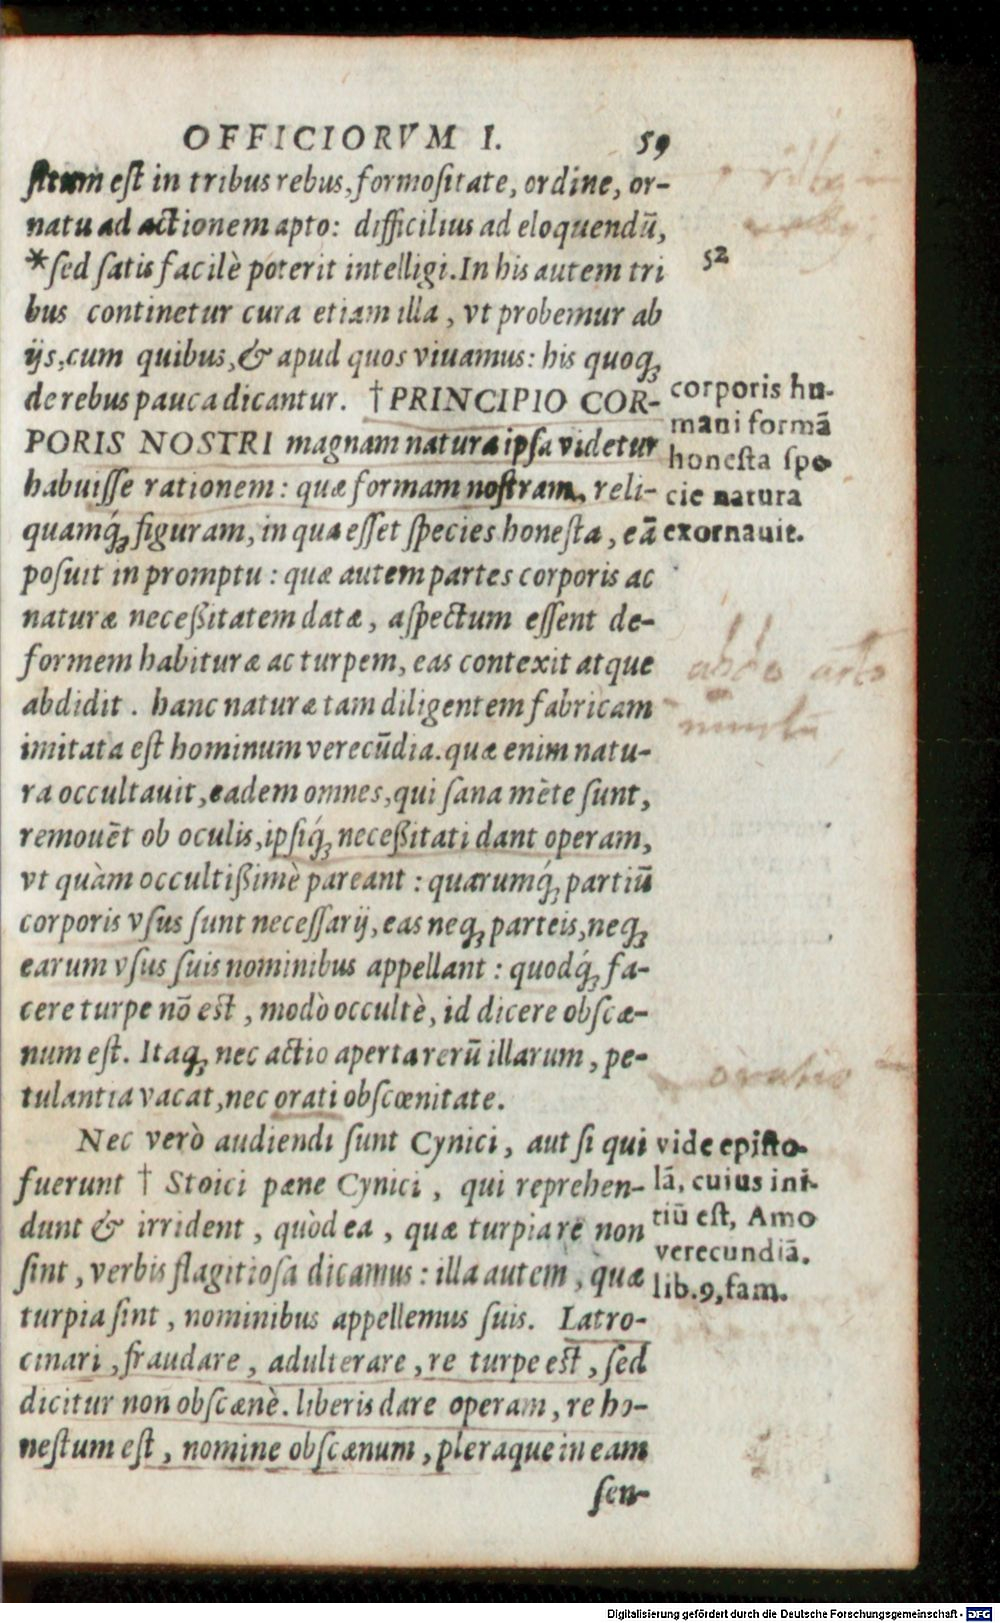 OFFICIORVM I. 59
situm est in tribus rebus, formositate, ordine, or-
natu ad actionem apto: difficilius ad eloquendũ,
*sed satis facilè poterit intelligi. In his autem tri
52
bus continetur cura etiam illa, vt probemur ab
ijs, cum quibus, & apud quos viuamus: his quoq;
de rebus pauca dicantur. †PRINCIPIO COR-
PORIS NOSTRI magnam natura ipsa videtur
habuisse rationem: quæ formam nostram, reli-
quamq́; figuram, in qua esset species honesta, eã
posuit in promptu: quæ autem partes corporis ac
naturæ neceßitatem datæ, aspectum essent de-
formem habituræ ac turpem, eas contexit atque
abdidit. hanc naturæ tam diligentem fabricam
imitata est hominum verecũdia. quæ enim natu-
ra occultauit, eadem omnes, qui sana mẽte sunt,
remouẽt ob oculis, ipsiq́; neceßitati dant operam,
vt quàm occultißimè pareant: quarumq́; partiũ
corporis vsus sunt necessarij, eas neq; parteis, neq;
earum vsus suis nominibus appellant: quodq́; fa-
cere turpe nõ est, modò occultè, id dicere obscæ-
num est. Itaq; nec actio aperta rerũ illarum, pe-
tulantia vacat, nec orati obscœnitate.
Nec verò audiendi sunt Cynici, aut si qui
fuerunt † Stoici pæne Cynici, qui reprehen-
dunt & irrident, quòd ea, quæ turpia re non
sint, verbis flagitiosa dicamus: illa autem, quæ
turpia sint, nominibus appellemus suis. Latro-
cinari, fraudare, adulterare, re turpe est, sed
dicitur non obscænè. liberis dare operam, re ho-
nestum est, nomine obscænum, pleraque in eam
sen-
corporis hu-
mani formã
honesta spe
cie natura
exornauit.
oratio
vide episto-
lã, cuius ini-
tiũ est, Amo
verecundiã.
lib.9, fam.
Digitalisierung gefördert durch die Deutsche Forschungsgemeinschaft - DFG